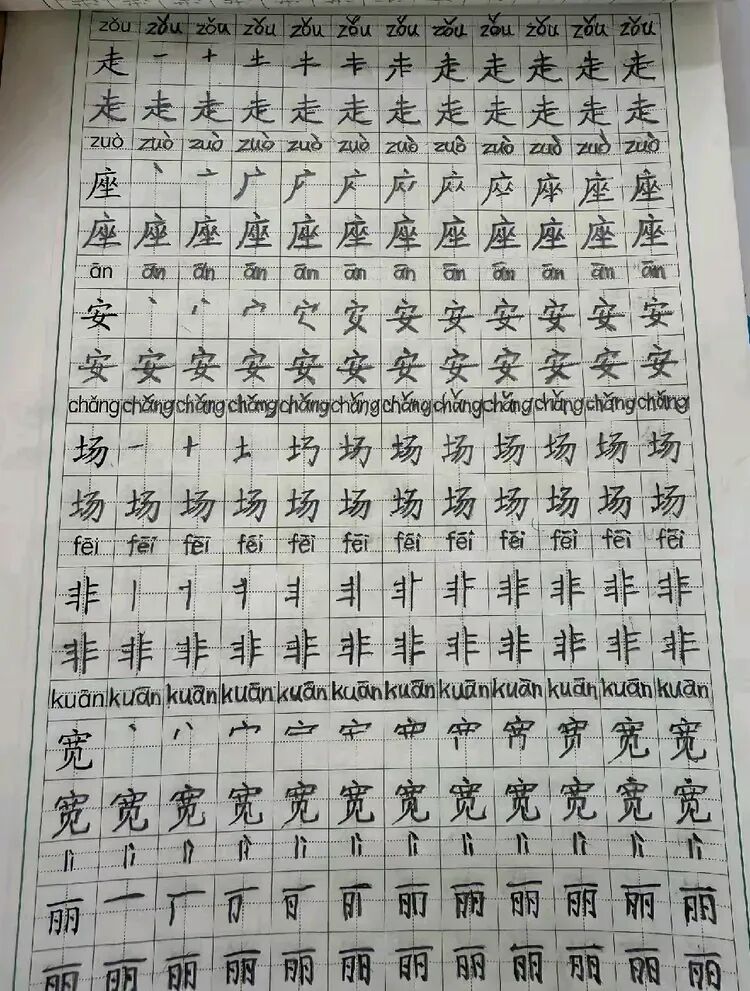 zǒu zǒu zǒu zǒu zǒu zǒu zǒu zǒu zǒu zǒu zǒu zǒu
走 一 十 土 走 走 走 走 走
走 走 走 走 走 走 走 走 走 走 走 走
zuò zuò zuò zuò zuò zuò zuò zuò zuò zuò zuò zuò
座 丶 亠 广 座 座 座
座 座 座 座 座 座 座 座 座 座 座 座
ān ān ān ān ān ān ān ān ān ān ān ān
安 丶 宀 安 安 安 安 安 安
安 安 安 安 安 安 安 安 安 安 安 安
chǎng chǎng chǎng chǎng chǎng chǎng chǎng chǎng chǎng chǎng chǎng chǎng
场 一 十 土 场 场 场 场 场 场 场
场 场 场 场 场 场 场 场 场 场 场 场
fēi fēi fēi fēi fēi fēi fēi fēi fēi fēi fēi fēi
非 丨 非 非 非 非 非
非 非 非 非 非 非 非 非 非 非 非 非
kuān kuān kuān kuān kuān kuān kuān kuān kuān kuān kuān kuān
宽 丶 宀 宽 宽
宽 宽 宽 宽 宽 宽 宽 宽 宽 宽 宽 宽
丽 一 丽 丽 丽 丽 丽 丽
丽 丽 丽 丽 丽 丽 丽 丽 丽 丽 丽 丽